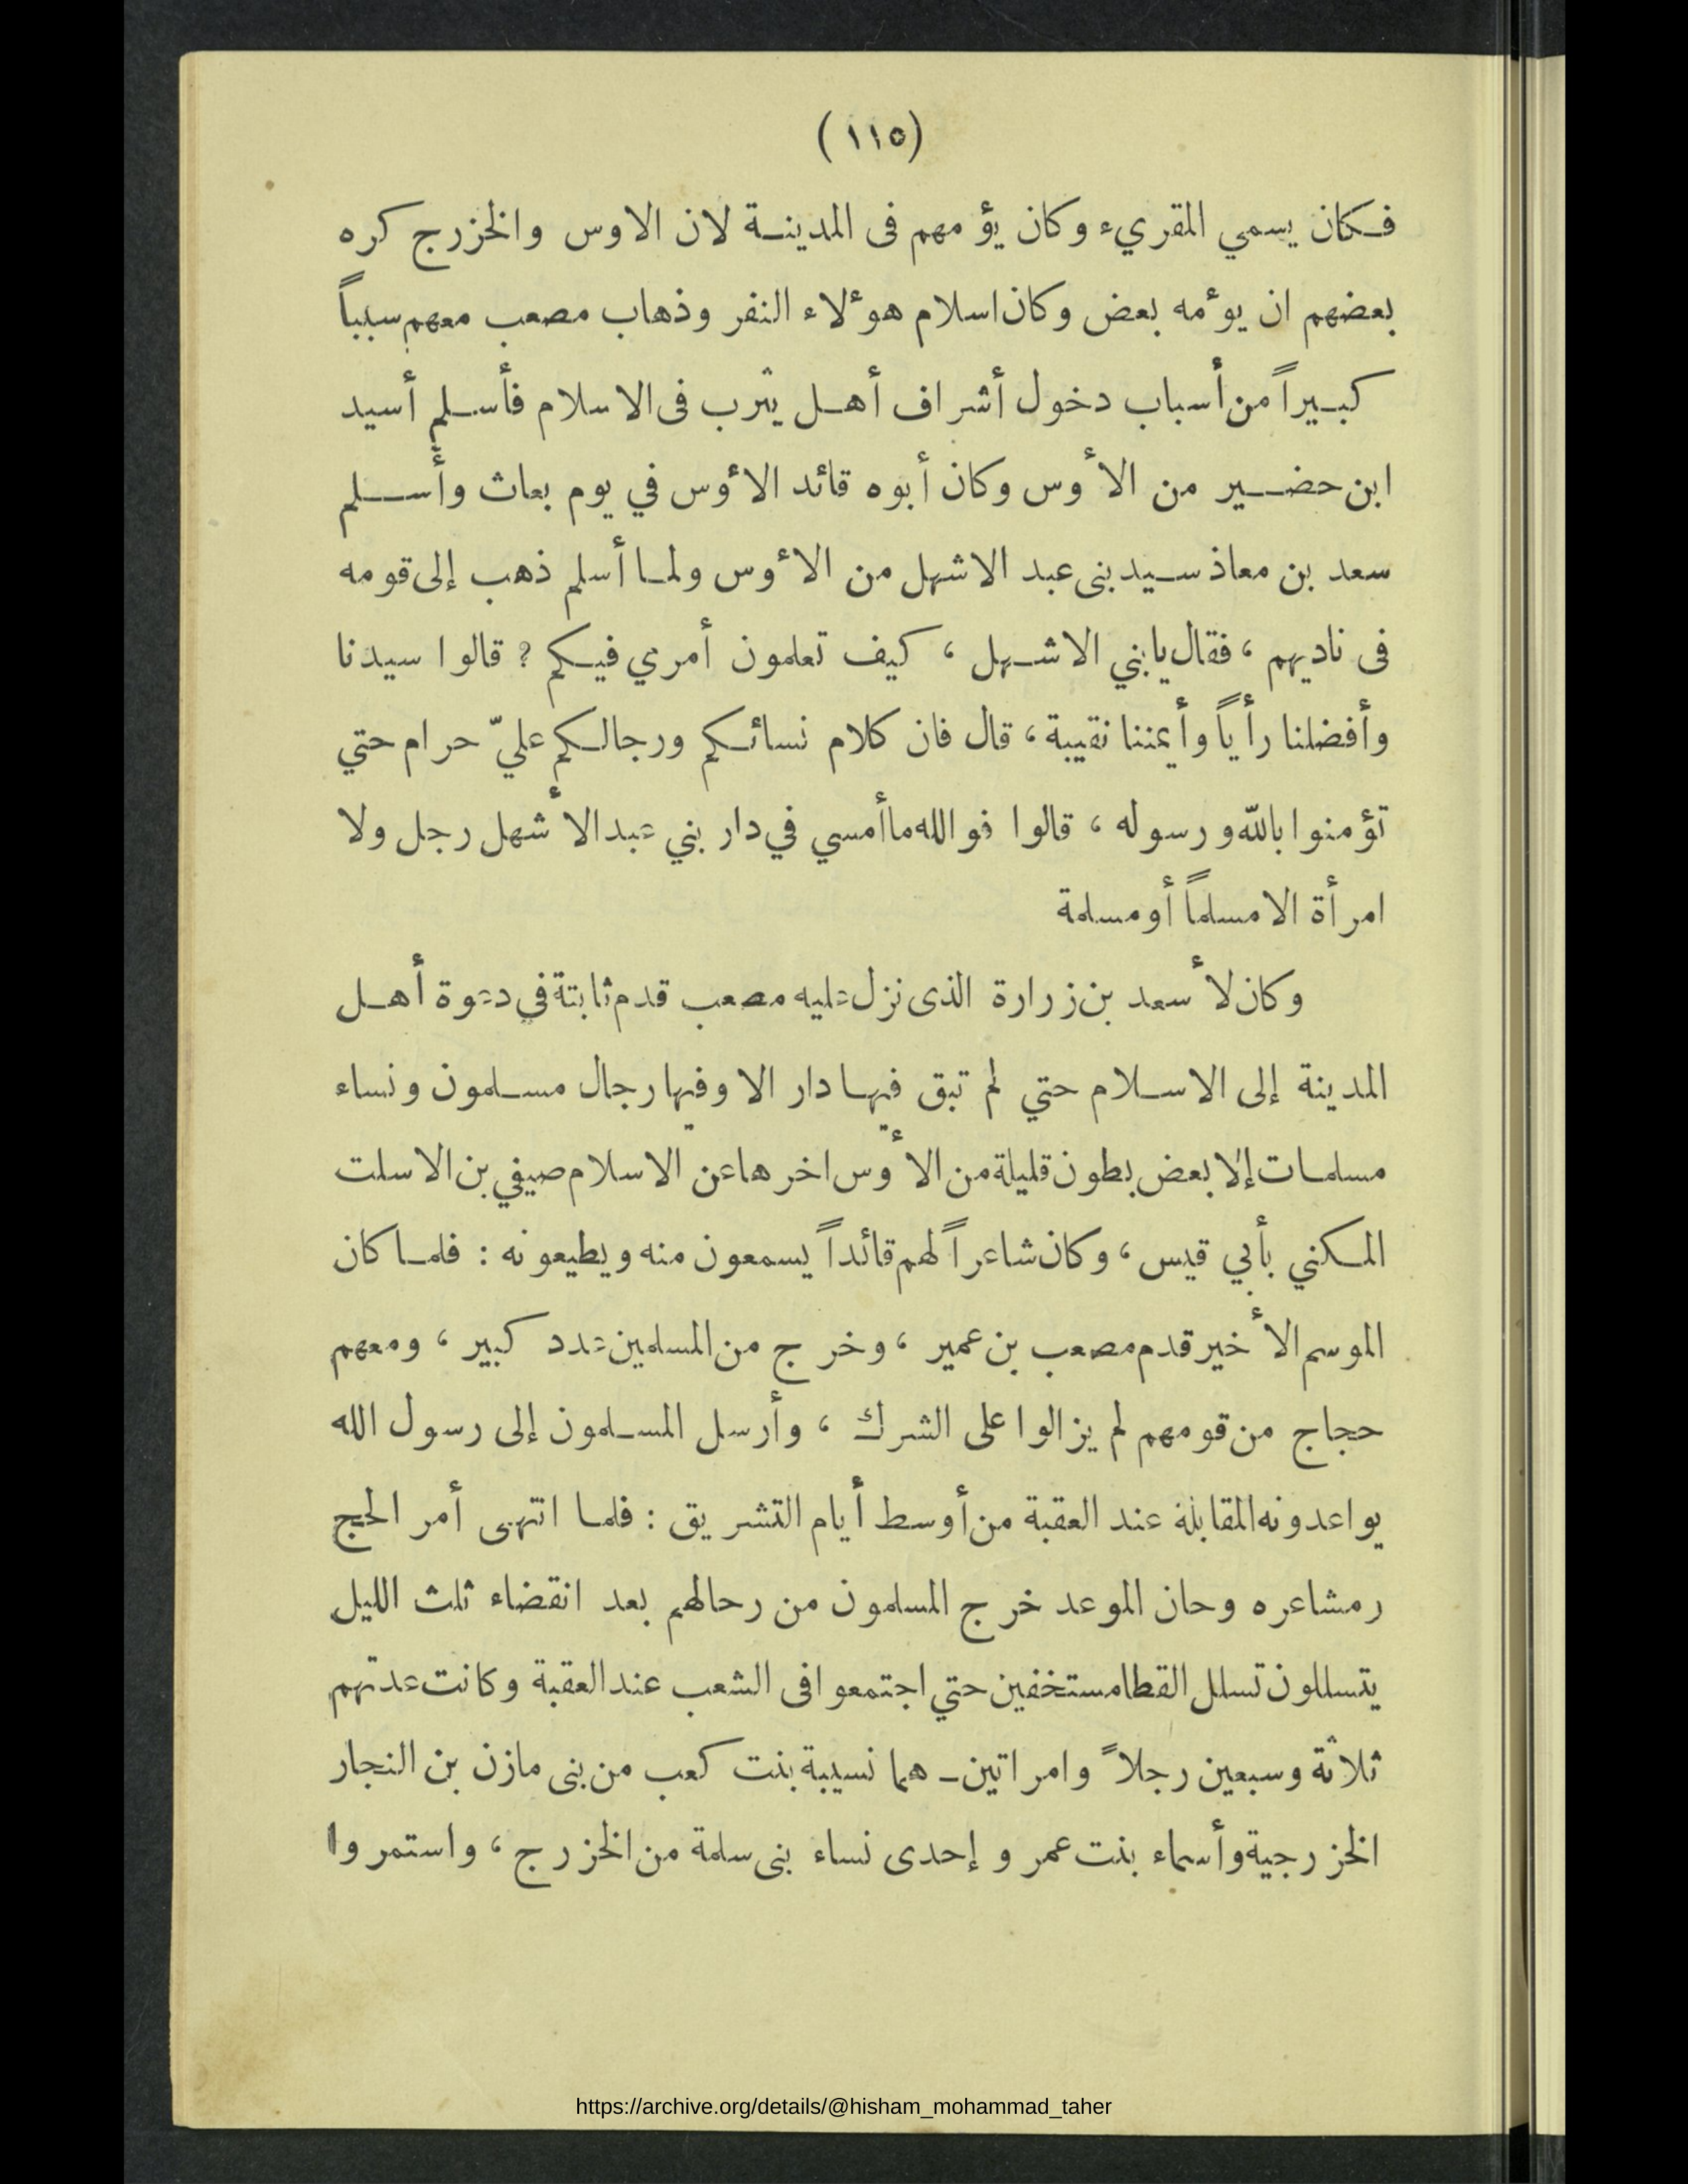 (١١٥)
فكان يسمي المقريء وكان يؤمهم فى المدينة لان الاوس والخزرج كره
بعضهم ان يوءمه بعض وكان اسلام هوءلاء النفر وذهاب مصعب معهم سبباً
كبيراً من أسباب دخول أشراف أهل يثرب فى الاسلام فأسلم أسيد
ابن حضير من الأوس وكان أبوه قائد الأوس في يوم بعاث وأسلم
سعد بن معاذ سيد بنى عبد الاشهل من الأوس ولما أسلم ذهب إلى قومه
فى ناديهم ، فقال يابني الاشهل ، كيف تعلمون أمري فيكم ? قالوا سيدنا
وأفضلنا رأياً وأيمننا نقيبة ، قال فان كلام نسائكم ورجالكم عليّ حرام حتي
تؤمنوا باللّه ورسوله ، قالوا فوالله ماأمسي في دار بني عبد الأشهل رجل ولا
امرأة الا مسلماً أو مسلمة
وكان لأسعد بن زرارة الذى نزل عليه مصعب قدم ثابتة في دعوة أهل
المدينة إلى الاسلام حتي لم تبق فيها دار الا وفيها رجال مسلمون ونساء
مسلمات إلا بعض بطون قليلة من الأوس اخرها عن الاسلام صيفي بن الاسلت
المكني بأبي قيس ، وكان شاعراً لهم قائداً يسمعون منه ويطيعونه : فلما كان
الموسم الأخير قدم مصعب بن عمير ، وخرج من المسلمين عدد كبير ، ومعهم
حجاج من قومهم لم يزالوا على الشرك ، وأرسل المسلمون إلى رسول الله
يواعدونه المقابلة عند العقبة من أوسط أيام التشريق : فلما انتهى أمر الحج
رمشاعره وحان الموعد خرج المسلمون من رحالهم بعد انقضاء ثلث الليل
يتسللون تسلل القطا مستخفين حتي اجتمعوا فى الشعب عند العقبة وكانت عدتهم
ثلاثة وسبعين رجلاً وامراتين ـ هما نسيبة بنت كعب من بنى مازن بن النجار
الخزرجية وأسماء بنت عمرو إحدى نساء بنى سلمة من الخزرج ، واستمروا
https://archive.org/details/@hisham_mohammad_taher